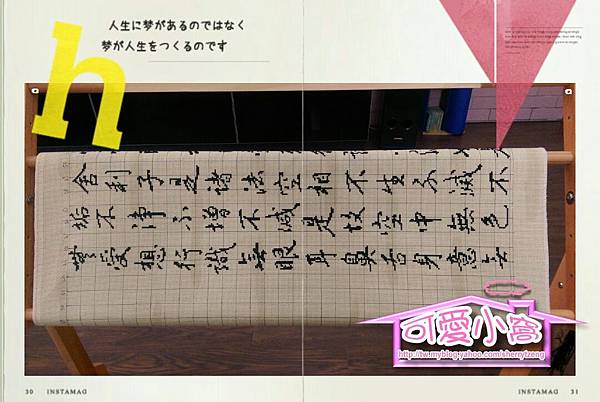 人生に梦があるのではなく
梦が人生をつくるのです
h
舍利子是諸法空相不生不滅不
垢不淨不增不減是故空中無色
無受想行識無眼耳鼻舌身意無
可愛小窩
http://tw.myblog.yahoo.com/sherrytzeng
30 INSTAMAG
INSTAMAG 31